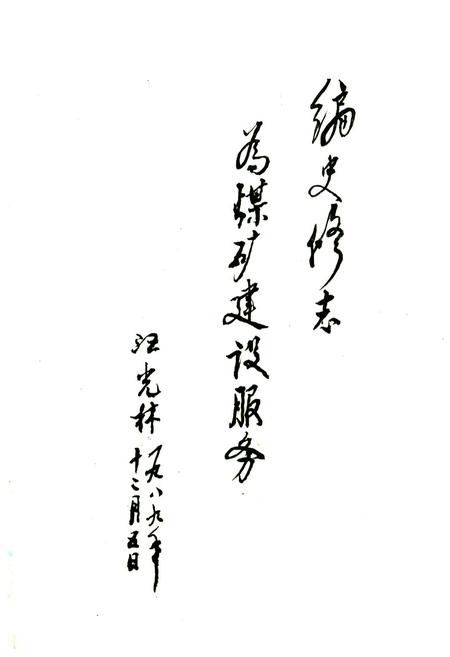 编史修志
為煤矿建设服务
汪光林 一九八九年
十二月五日